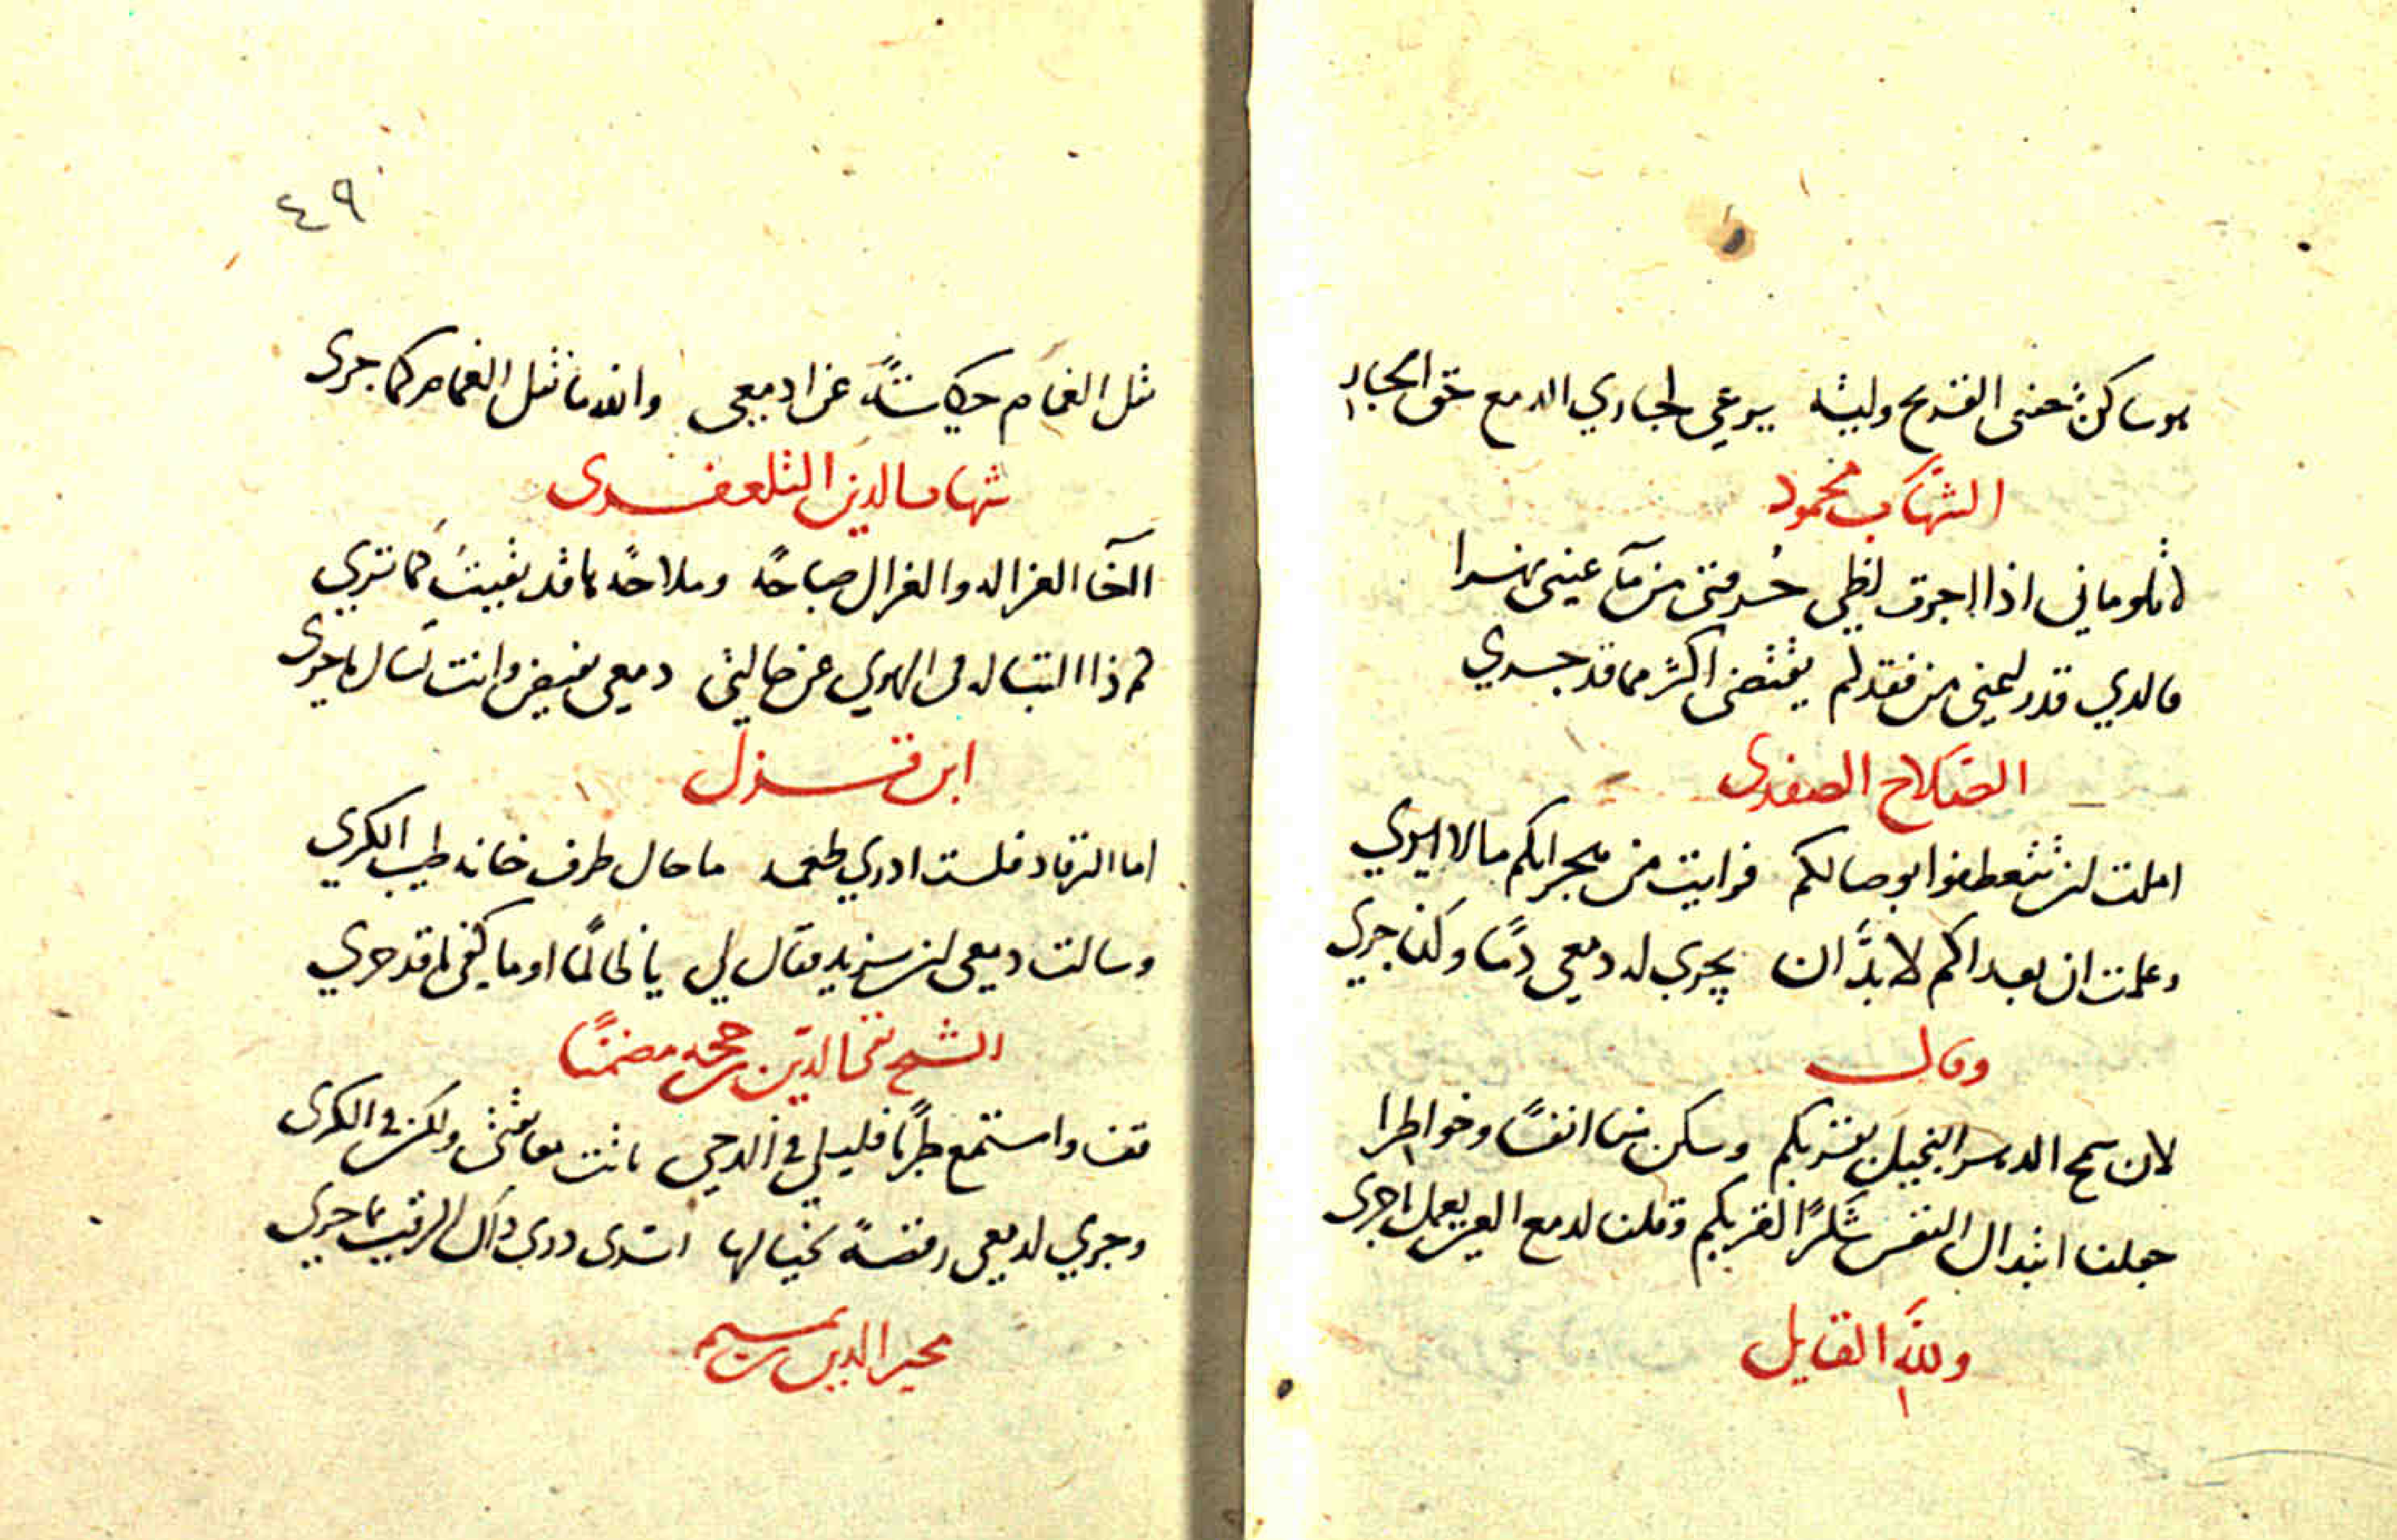 هو ساكن جفنى القديح وليته يرعي لجاري الدمع حق الجار
الشهاب محمود
لا تلوماني اذا اجرت لظي حرقتى من ماء عيني نهرا
فالدي قدر لعيني من فقدلم يقتضى اكثر مما قد جري
الصلاح الصفدى
املت لن تتعطفوا بوصالكم فرايت من هجرانكم مالا يري
وعلمت ان بعداكم لا بدّ ان يجري له دمعي دمًا وكذا جري
وقال
لان سمح الدهر البخيل بقربكم وسكن منا انفسًا وخواطرا
جعلنا ابتدال النفس شكرًا لقربكم وقلنا لدمع العين يعمل ماجرى
ولله القايل
٤٩
مثل الغمام حكايتةً عن ادمعى والله ما مثل الغمام كما جرى
شهاب الدين التلعفرى
الخا الغزاله والغزال صباحة وملاحة ماقد بقيت كما تري
كم ذا التساله فى الهوي عن حالتي دمعى يفيض وانت تسال ماجرى
ابن قزل
اما الرقاد فلست ادري طعمه ما حال طرف خانه طيب الكري
وسالت دمعى لن يزيد فقال لي يا ظالمًا اوما كفى ما قد جري
الشيخ تقى الدين بن حجه مضمنًا
قف واستمع طربًا فليلي في الدجى باتت معانقتى ولكن في الكرى
وجري لدمعى رقصة بخيالها اترى دري ذاك الرقيب بما جري
مجير الدين بن تميم